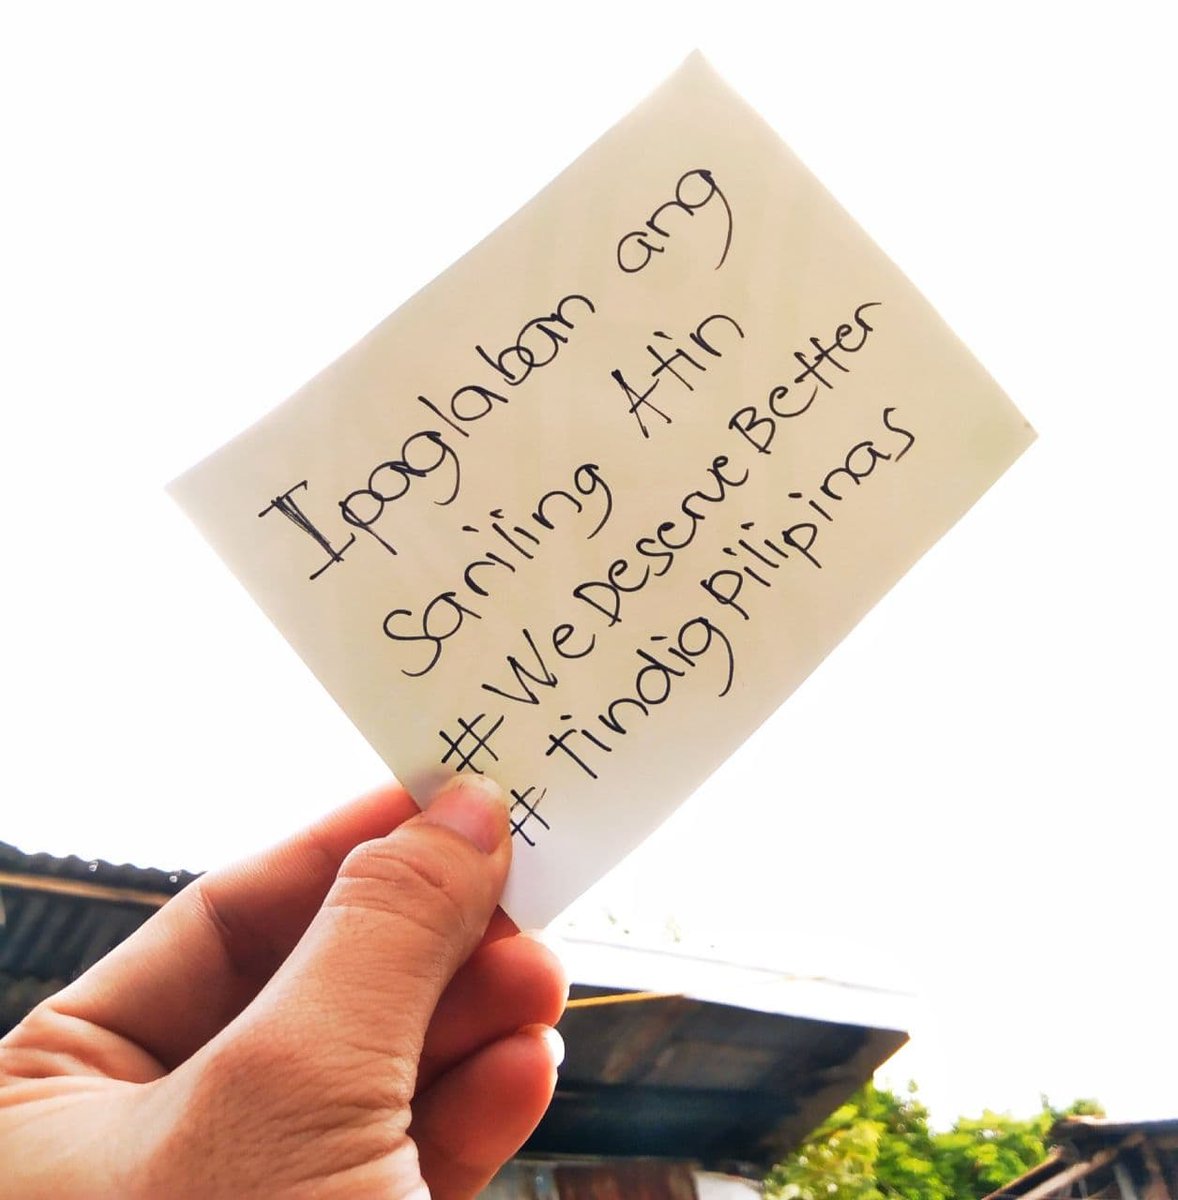 Ipaglaban ang
Sariling Atin
#WeDeserveBetter
#tindigpilipinas